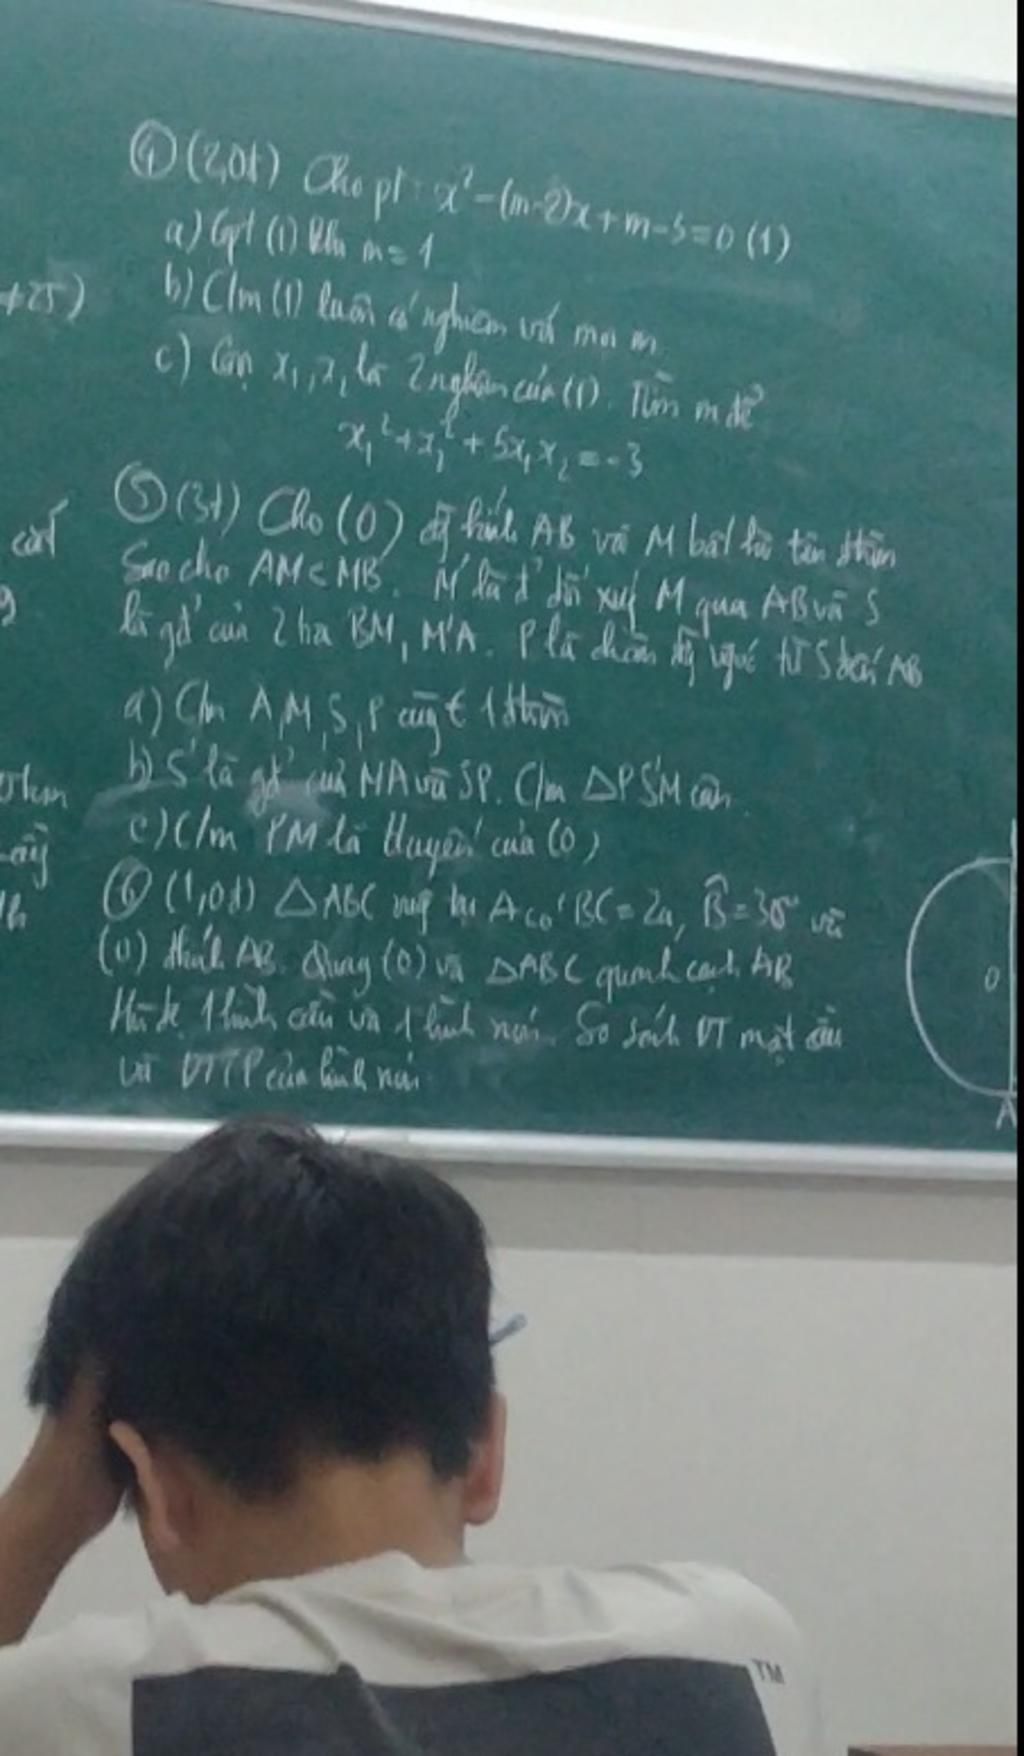 ④ (2,0đ) Cho pt: x² - (m-2)x + m - 5 = 0 (1)
a) Gpt (1) khi m = 1
≠25)
b) C/m (1) luôn có nghiệm với mọi m.
c) Gọi x₁, x₂ là 2 nghiệm của (1). Tìm m để
x₁² + x₂² + 5x₁x₂ = -3
⑤ (3đ) Cho (O) đg kính AB và M bất kì trên
Sao cho AM < MB. M' là đ' đối xứg M qua AB và S
là gđ' của 2 tia BM, M'A. P là chân đg vgóc từ S đến AB
a) C/m A, M, S, P cùg ∈ 1
b) S' là gđ' của MA và SP. C/m △PS'M cân.
c) C/m PM là ttuyến của (O)
⑥ (1,0đ) △ABC vg tại A có BC = 2a, B̂ = 30° và
(O) đkính AB. Quay (O) và △ABC quanh cạnh AB
1 hình cầu và 1 hình nón. So sánh DT mặt cầu
và DTTP của hình nón
O
A
TM